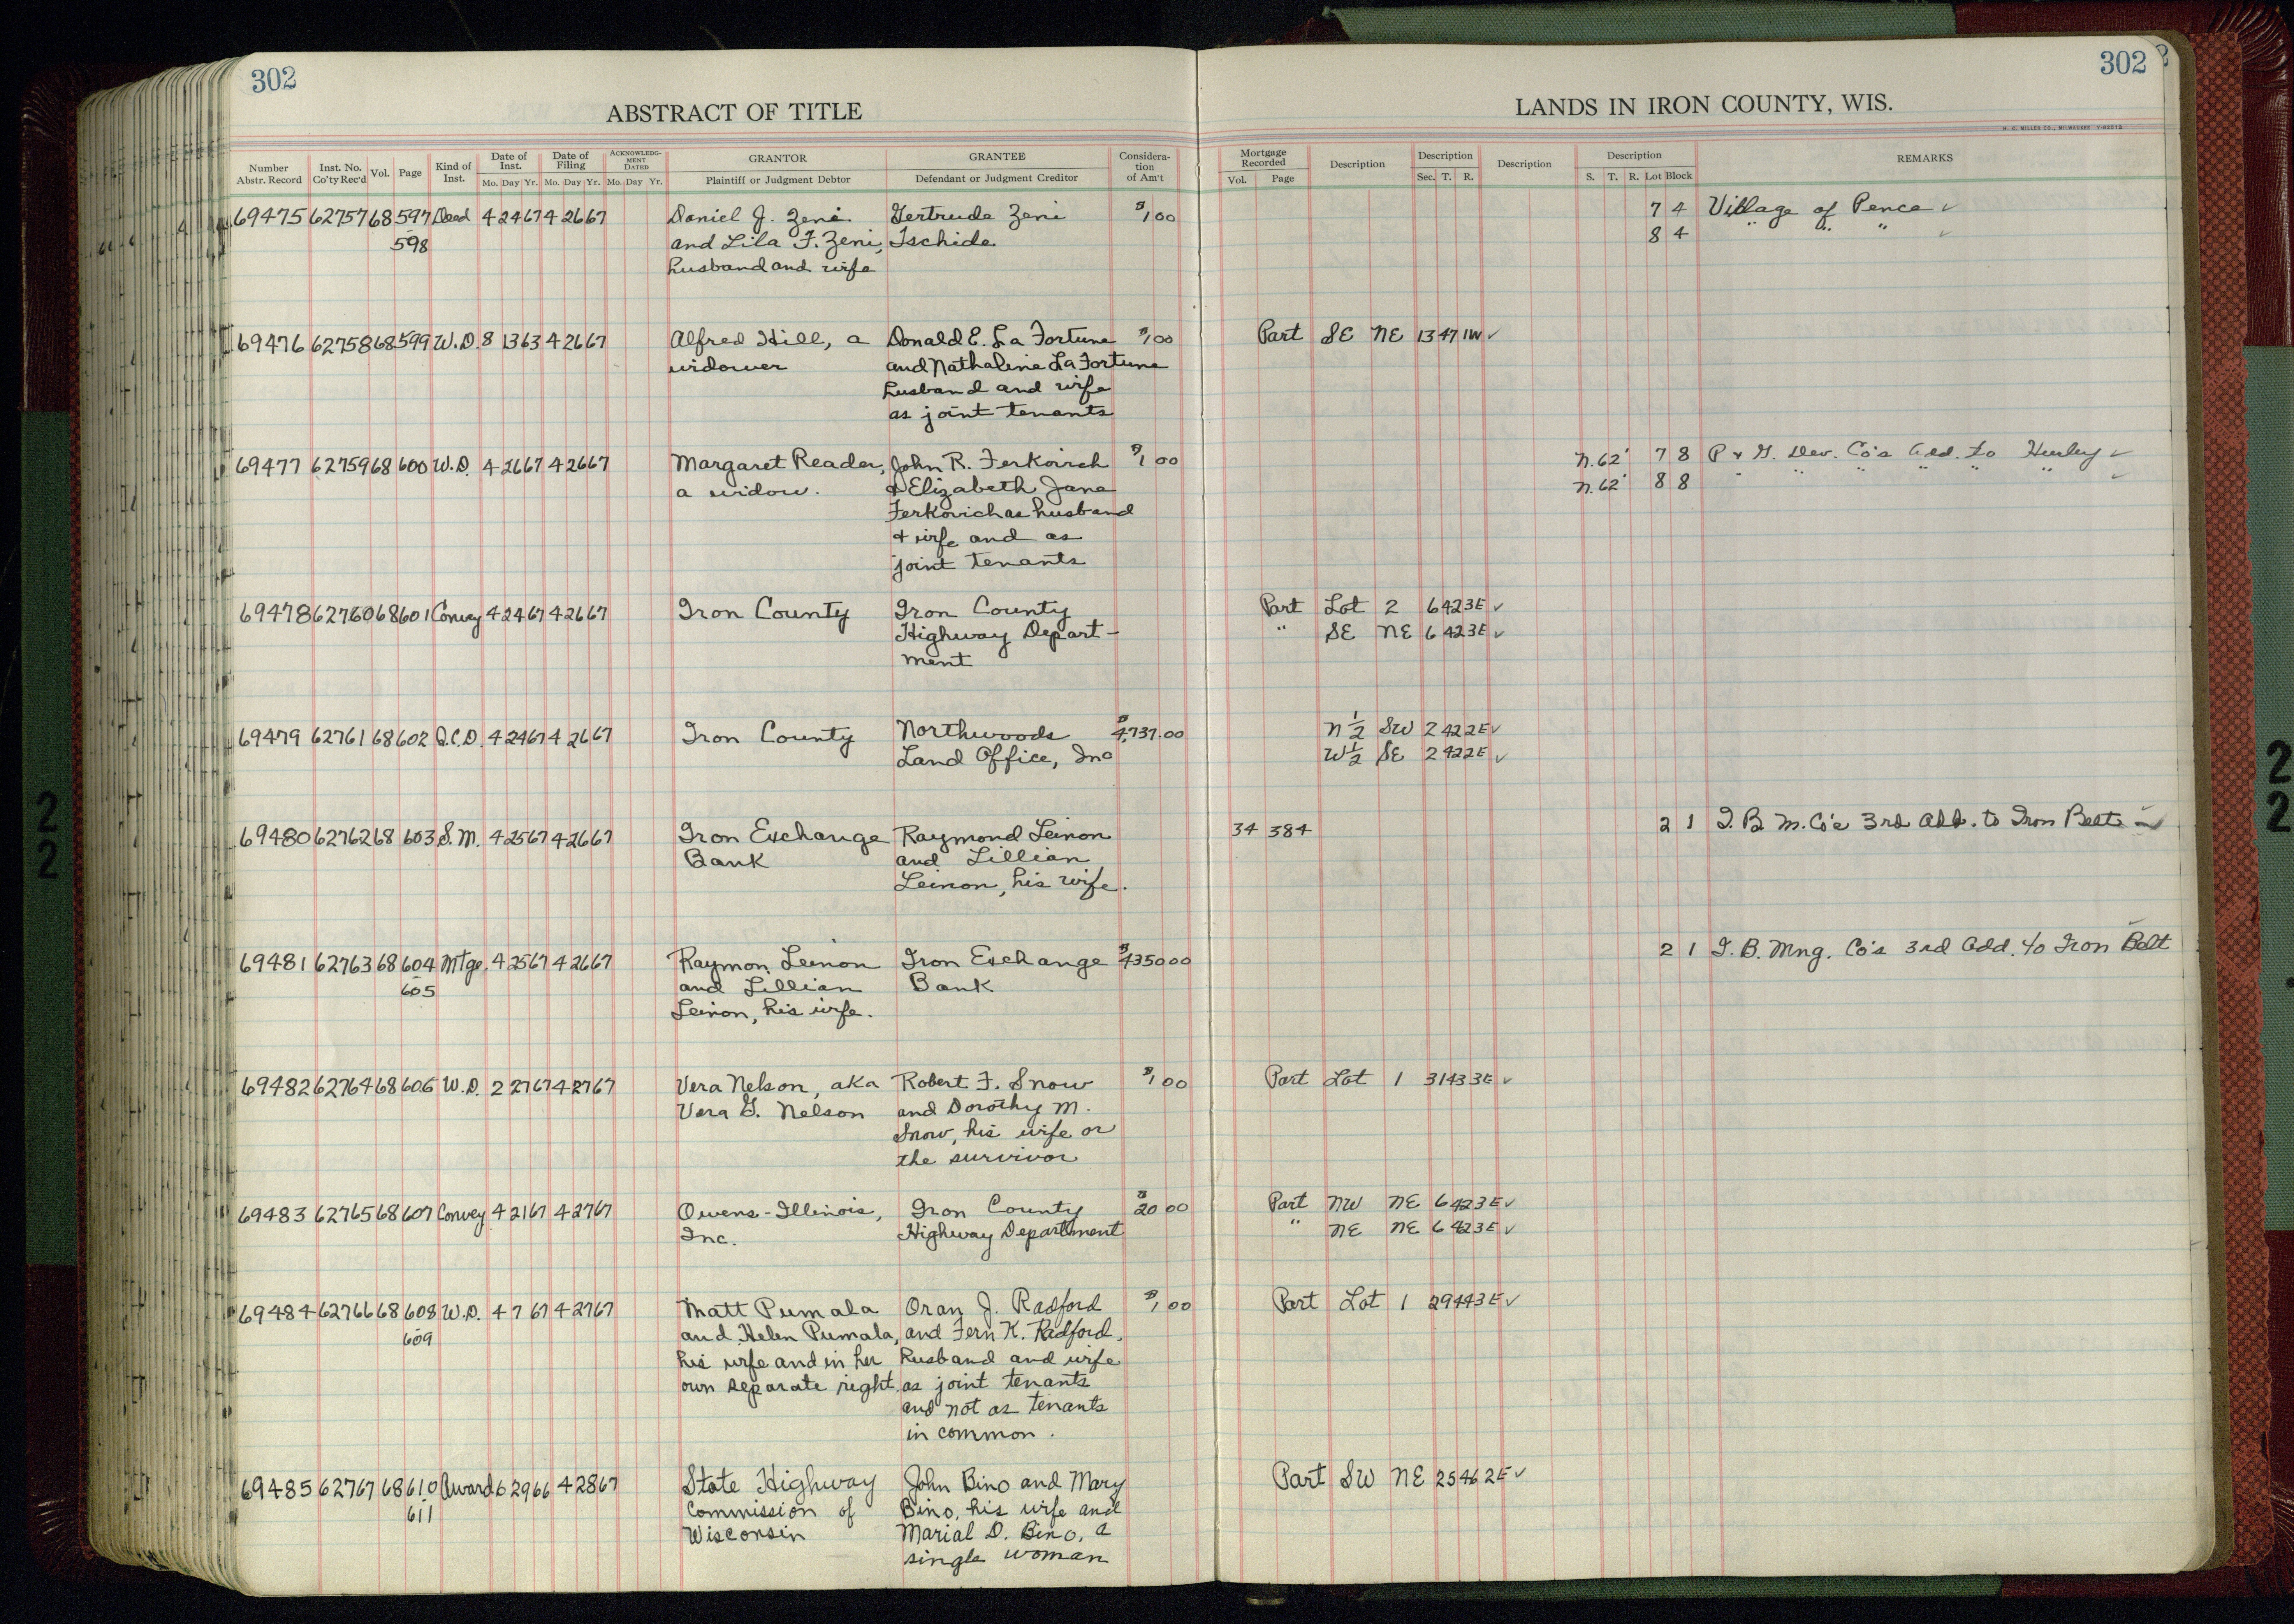 302
302
ABSTRACT OF TITLE
LANDS IN IRON COUNTY, WIS.
H. C. MILLER CO., MILWAUKEE
Number Abstr. Record | Inst. No. Co'ty Rec'd | Vol. | Page | Kind of Inst. | Date of Inst. Mo. Day Yr. | Date of Filing Mo. Day Yr. | ACKNOWLEDGMENT DATED Mo. Day Yr. | GRANTOR Plaintiff or Judgment Debtor | GRANTEE Defendant or Judgment Creditor | Consideration of Am't
Mortgage Recorded Vol. Page | Description | Description Sec. T. R. | Description | Description S. T. R. Lot Block | REMARKS
69475 62757 68 597 Deed 4 24 67 4 26 67 Daniel J. Zeni Gertrude Zeni $1 00 7 4 Village of Pence ✓
598 and Lila F. Zeni, Tschida 8 4 " " " ✓
husband and wife
69476 62758 68 599 W.D. 8 13 63 4 26 67 Alfred Hill, a Donald E. La Fortune $1 00 Part SE NE 13 47 1W ✓
widower and Nathaline La Fortune
husband and wife
as joint tenants
69477 62759 68 600 W.D. 4 26 67 4 26 67 Margaret Reader, John R. Ferkovich $1 00 N.62' 7 8 P & G. Dev. Co's Add. to Hurley ✓
a widow. & Elizabeth Jane N.62' 8 8 " " " " " " ✓
Ferkovich as husband
& wife and as
joint tenants
69478 62760 68 601 Convey 4 24 67 4 26 67 Iron County Iron County Part Lot 2 6 42 3E ✓
Highway Depart- " SE NE 6 42 3E ✓
ment
69479 62761 68 602 Q.C.D. 4 24 67 4 26 67 Iron County Northwoods $4,737.00 N½ SW 2 42 2E ✓
Land Office, Inc W½ SE 2 42 2E ✓
69480 62762 68 603 S.M. 4 25 67 4 26 67 Iron Exchange Raymond Leinon 34 384 2 1 I. B. M. Co's 3rd Add. to Iron Belt ✓
Bank and Lillian
Leinon, his wife.
69481 62763 68 604 Mtge. 4 25 67 4 26 67 Raymon Leinon Iron Exchange $4350 00 2 1 I. B. Mng. Co's 3rd Add. to Iron Belt ✓
605 and Lillian Bank
Leinon, his wife.
69482 62764 68 606 W.D. 2 27 67 4 27 67 Vera Nelson, aka Robert F. Snow $1 00 Part Lot 1 31 43 3E ✓
Vera G. Nelson and Dorothy M.
Snow, his wife or
the survivor
69483 62765 68 607 Convey 4 21 67 4 27 67 Owens-Illinois, Iron County $20 00 Part NW NE 6 42 3E ✓
Inc. Highway Department " NE NE 6 42 3E ✓
69484 62766 68 608 W.D. 4 7 67 4 27 67 Matt Pumala Oran J. Radford $1 00 Part Lot 1 29 44 3E ✓
609 and Helen Pumala, and Fern K. Radford,
his wife and in her husband and wife
own separate right. as joint tenants
and not as tenants
in common.
69485 62767 68 610 Award 6 29 66 4 28 67 State Highway John Bino and Mary Part SW NE 25 46 2E ✓
611 Commission of Bino, his wife and
Wisconsin Marial D. Bino, a
single woman
22
22